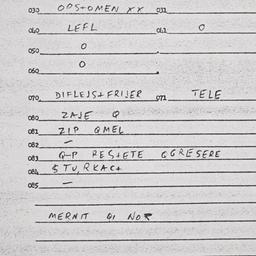 030 OPSTOMEN XX 031
040 LEFL 041 O
050 O
060 O
070 DIFLEJS+FRIJER 071 TELE
080 ZAJE Q
081 ZIP QMEL
082 —
083 Q-P RESTETE GGRESERE
084 STU, RKAC+
085 —
MERNIT QI NOR